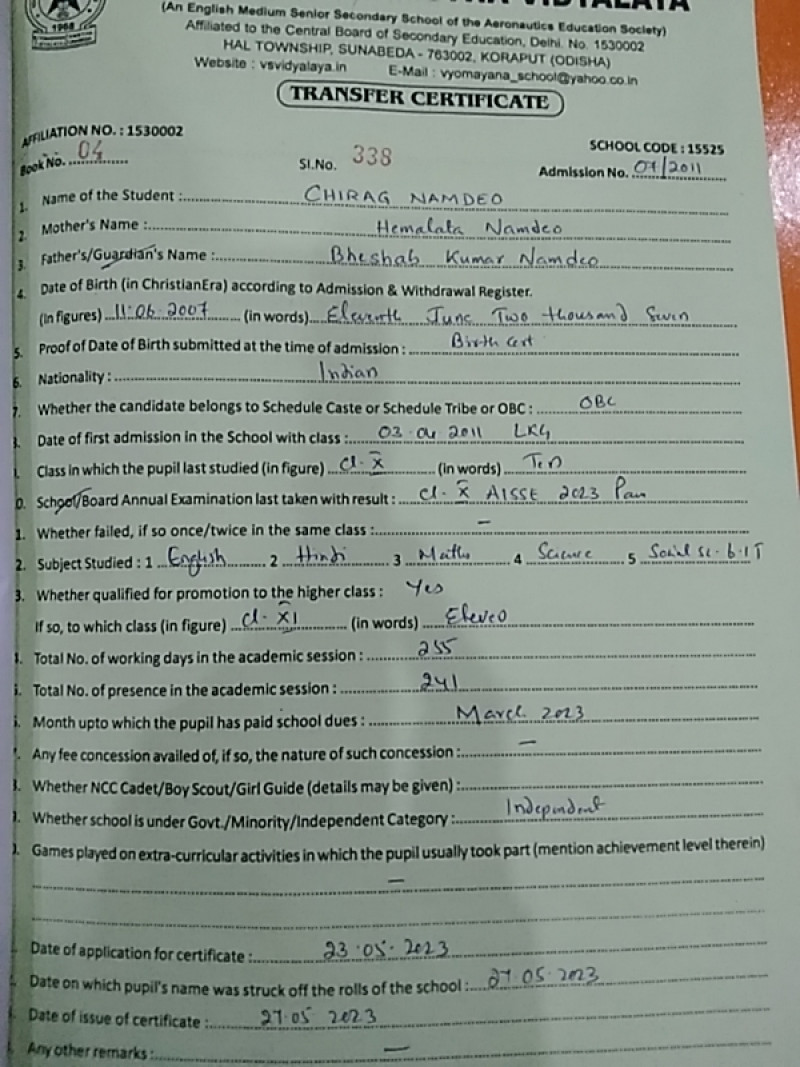 VIDYALAYA
(An English Medium Senior Secondary School of the Aeronautics Education Society)
Affiliated to the Central Board of Secondary Education, Delhi. No. 1530002
HAL TOWNSHIP, SUNABEDA - 763002, KORAPUT (ODISHA)
Website : vsvidyalaya.in E-Mail : vyomayana_school@yahoo.co.in
TRANSFER CERTIFICATE
AFFILIATION NO. : 1530002 SCHOOL CODE : 15525
Book No. 04 Sl.No. 338 Admission No. 07/2011
1. Name of the Student : CHIRAG NAMDEO
2. Mother's Name : Hemalata Namdeo
3. Father's/Guardian's Name : Bheshab Kumar Namdeo
4. Date of Birth (in ChristianEra) according to Admission & Withdrawal Register.
(In figures) 11.06.2007 (in words) Eleventh June Two thousand Seven
5. Proof of Date of Birth submitted at the time of admission : Birth cert
6. Nationality : Indian
7. Whether the candidate belongs to Schedule Caste or Schedule Tribe or OBC : OBC
Date of first admission in the School with class : 03.04 2011 LKG
Class in which the pupil last studied (in figure) Cl. X (in words) Ten
0. School/Board Annual Examination last taken with result : Cl. X AISSE 2023 Pass
1. Whether failed, if so once/twice in the same class : —
2. Subject Studied : 1 English 2 Hindi 3 Maths 4 Science 5 Social Sc. 6. IT
3. Whether qualified for promotion to the higher class : Yes
If so, to which class (in figure) Cl. XI (in words) Eleven
Total No. of working days in the academic session : 255
Total No. of presence in the academic session : 241
Month upto which the pupil has paid school dues : March 2023
Any fee concession availed of, if so, the nature of such concession : —
Whether NCC Cadet/Boy Scout/Girl Guide (details may be given) :
Whether school is under Govt./Minority/Independent Category : Independent
Games played on extra-curricular activities in which the pupil usually took part (mention achievement level therein)
—
Date of application for certificate : 23.05.2023
Date on which pupil's name was struck off the rolls of the school : 27.05.2023
Date of issue of certificate : 27.05 2023
Any other remarks : —